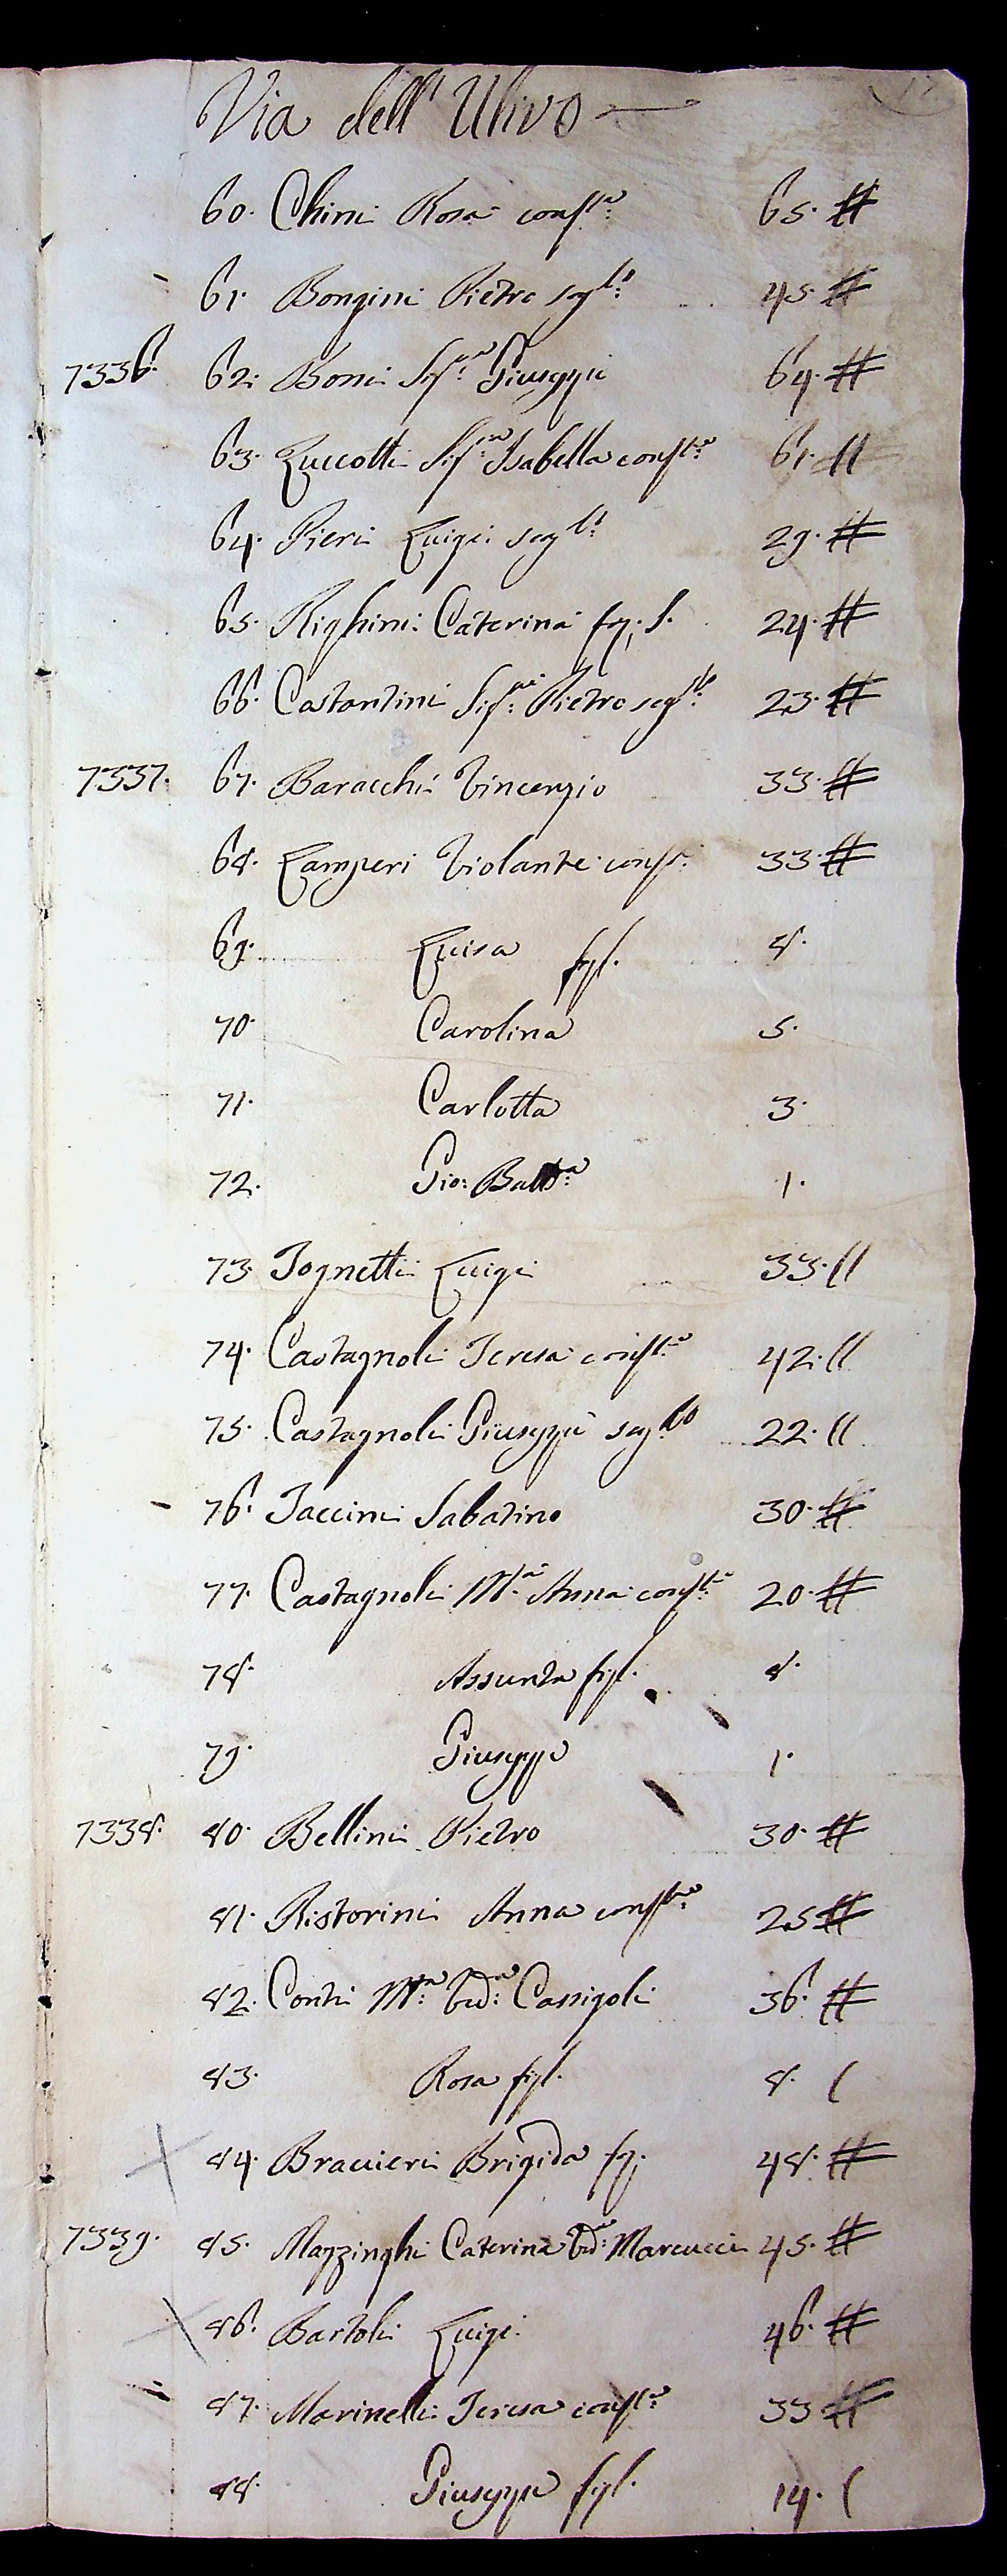 Via dell' Ulivo
60. Chini Rosa conste. 65.
61. Bongini Pietro seglo: 45.
7336. 62. Bonci Sigre. Giuseppe 64.
63. Zuccotti Sigra. Isabella conste: 61.
64. Pieri Luigi seglo: 29.
65. Righini Caterina fg. S. 24.
66. Costantini Sigre: Pietro seglo: 23.
7337. 67. Baracchi Vincenzio 33.
68. Lamperi Violante conse. 33.
69. Luisa figl. 8.
70. Carolina 5.
71. Carlotta 3.
72. Gio: Batta: 1.
73. Tognetti Luigi 33.
74. Castagnoli Teresa conste 42.
75. Castagnoli Giuseppe seglo 22.
76. Taccini Sabatino 30.
77. Castagnoli Ma. Anna conste: 20.
78. Assunta figl. 8.
79. Giuseppe 1.
7338. 80. Bellini Pietro 30.
81. Ristorini Anna conste: 25
82. Conti Ma:Veda: Cassigoli 36.
83. Rosa figl. 8.
84. Braccieri Brigida fg. 48.
7339. 85. Mazzinghi Caterina Veda: Marcucci 45.
86. Bartoli Luigi 46.
87. Marinelli Teresa conste 33
88. Giuseppe figl. 14.